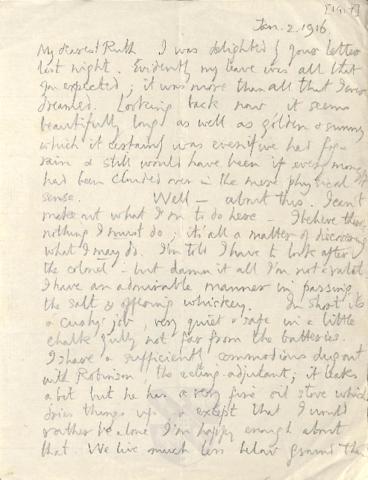 [1917]
Jan. 2. 1916.
My dearest Ruth I was delighted by your letter
last night. Evidently my leave was all that
you expected; it was more than all that I ever
dreamed. Looking back now it seems
beautifully long as well as golden & sunny
which it certainly was even if we had
rain & still would have been if every
had been clouded over in the mere physical
sense. Well — about this. I can't
make out what I'm to do here - I believe there's
nothing I must do; it's all a matter of discovering
what I may do. I'm told I have to look after
the colonel - but damn it all I'm not a valet.
I have an admirable manner in passing
the salt & offering whiskey. In short it's
a 'cushy' job, very quiet & safe in a little
chalk gully not far from the batteries.
I have a sufficiently commodious dugout
with Robinson, the acting-adjutant; it leaks
a bit but he has a very fine oil stove which
dries things up & except that I would
rather be alone I'm happy enough about
that. We live much less below ground than